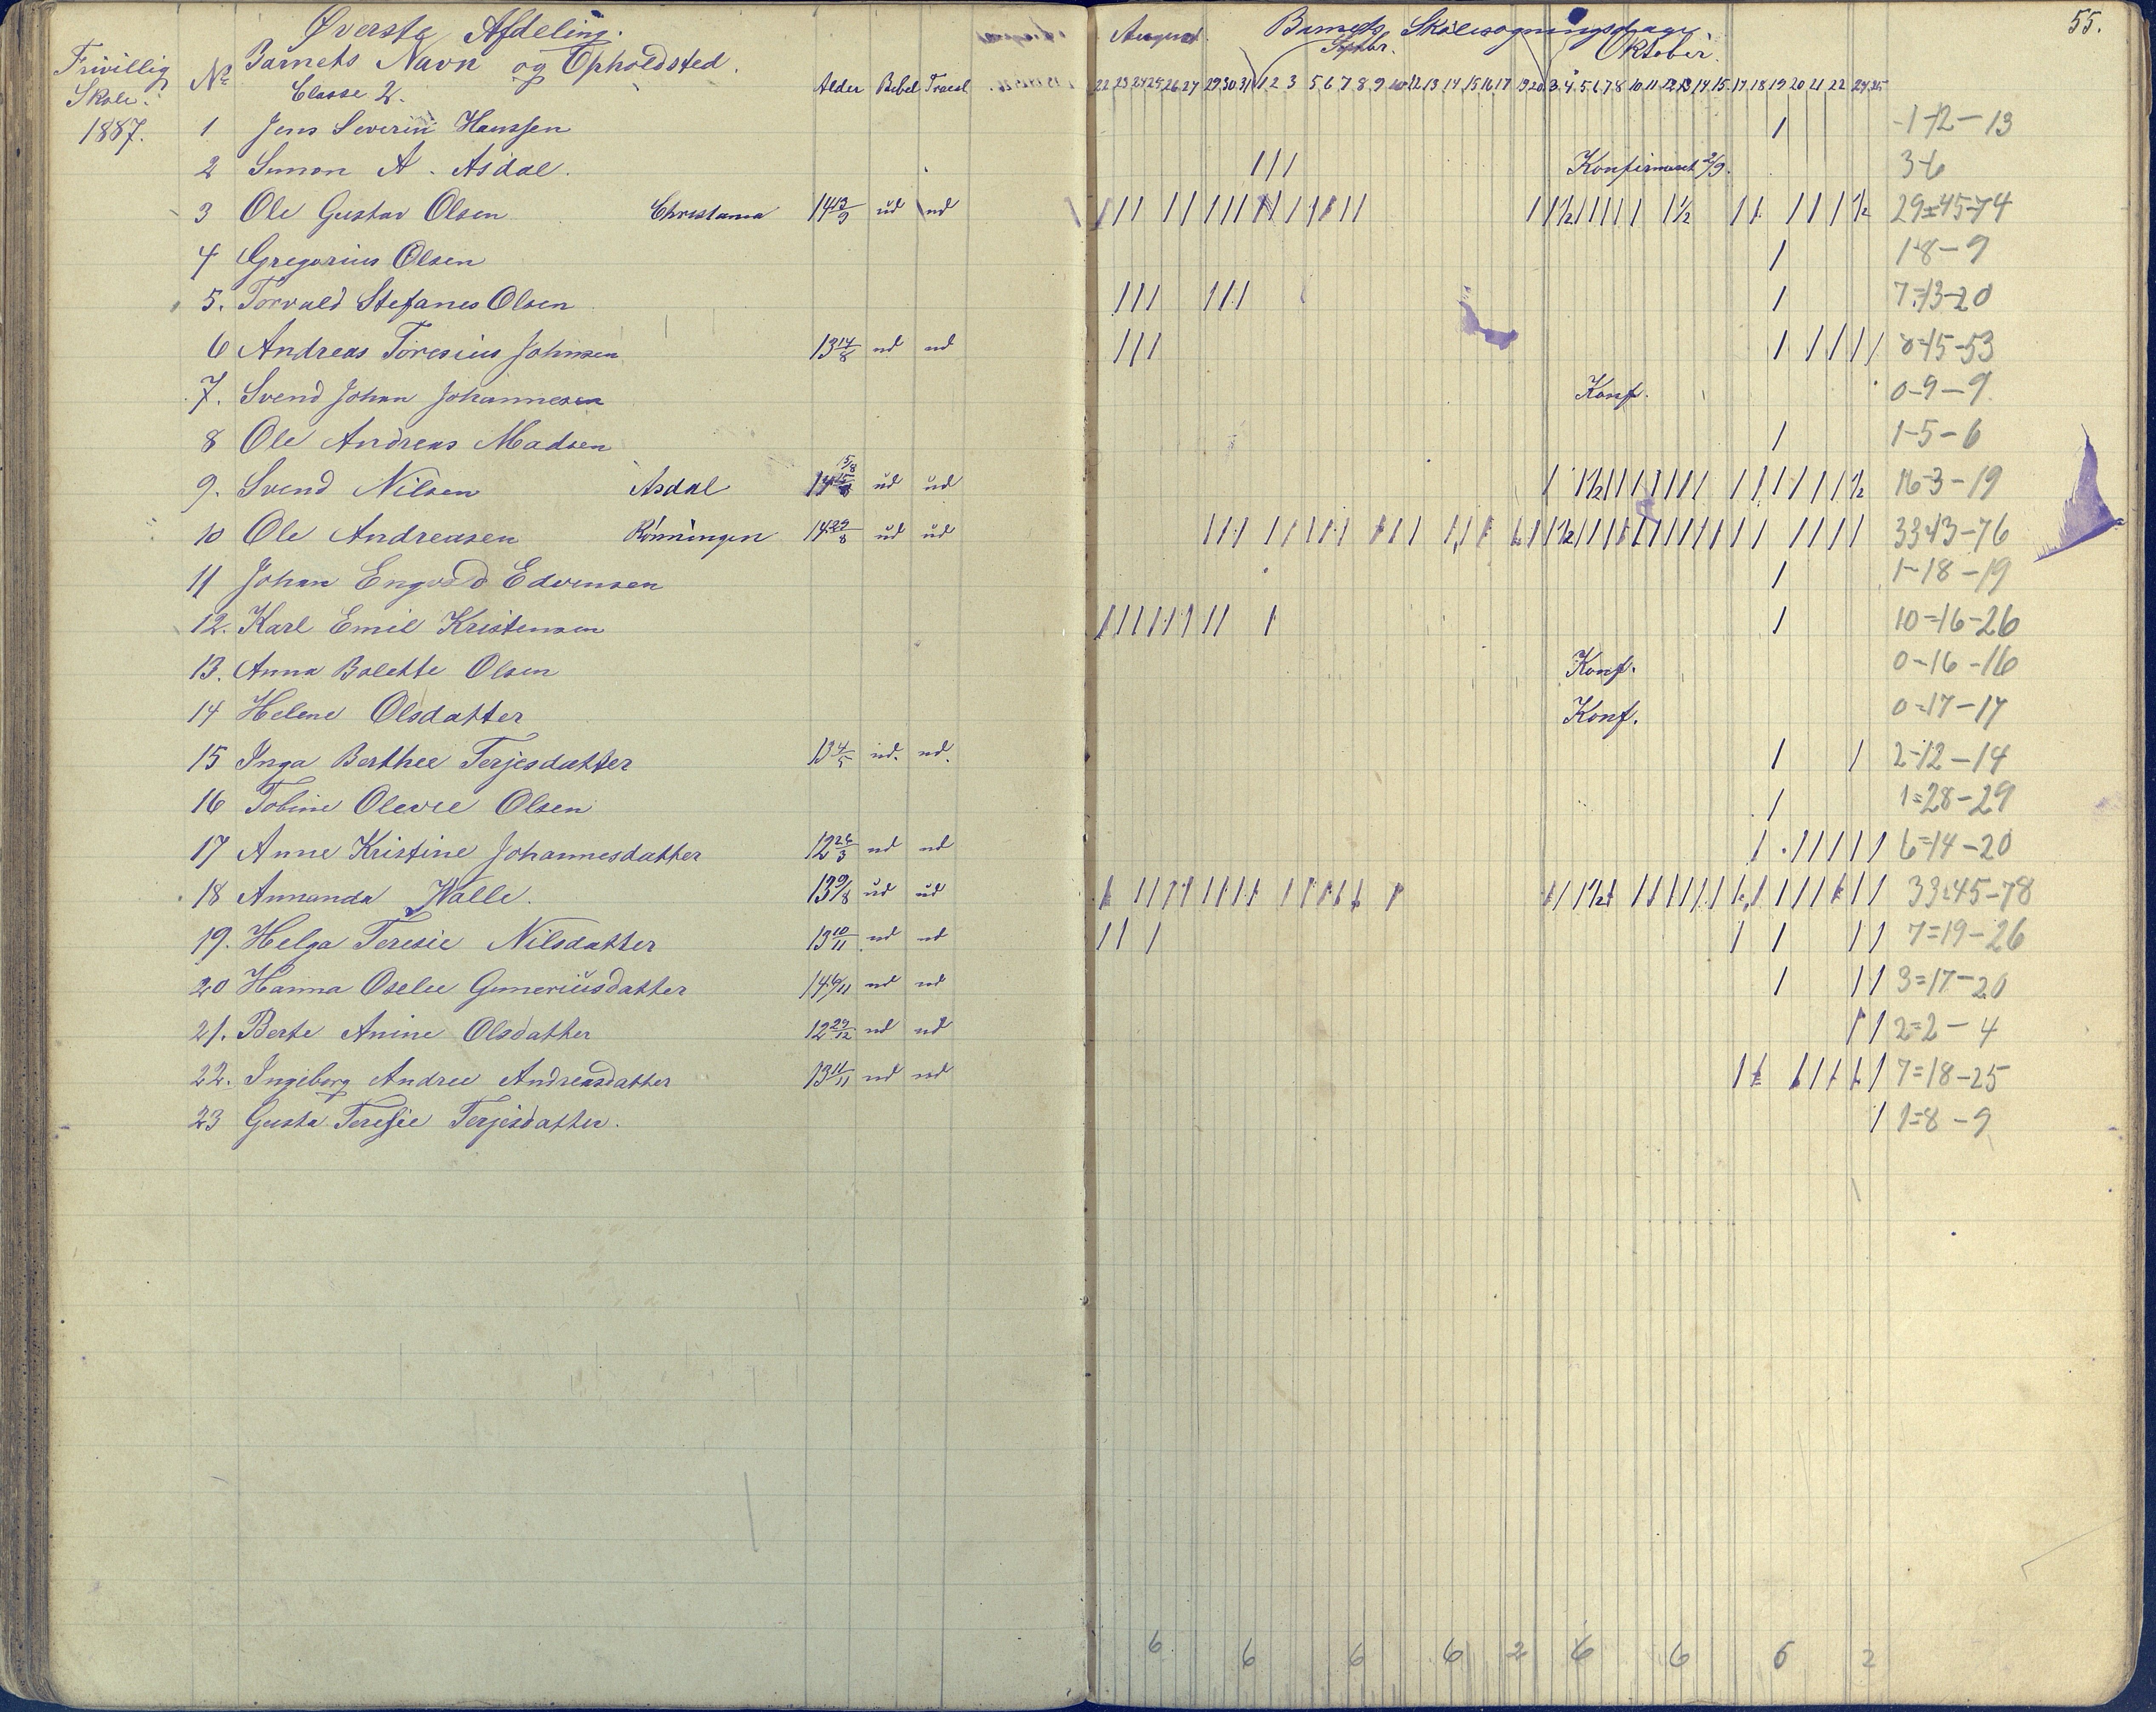 Øverste Afdeling. August. Barnets Skolesøgningsdage 55.
Frivillig Skole. Nr Barnets Navn og Opholdsted. Septbr. Oktober.
Classe 2. Alder Bibel Troesl. 22 23 24 25 26 27 29 30 31 1 2 3 5 6 7 8 9 10 12 13 14 15 16 17 19 20 3 4 5 6 7 8 10 11 12 13 14 15 17 18 19 20 21 22 24 25
1887. 1 Jens Severin Hanssen 1 1-12-13
2 Simon A. Asdal. 111 Konfirmert 3-6
3 Ole Gustav Olsen Christiania 14 13/9 ud ud 29=45-74
4 Gregorius Olsen 1 1-8-9
5. Torvald Stefanes Olsen 111 111 1 7=13-20
6 Andreas Toresius Johnsen 13 14/8 ud ud 111 1 1111 8-45-53
7. Svend Johan Johannesen Konf. 0-9-9
8 Ole Andreas Madsen 1 1-5-6
9. Svend Nilsen Asdal 14 15/8 ud ud 16-3-19
10 Ole Andreasen Rønningen 14 29/8 ud ud 33-43-76
11 Johan Engvald Edvensen 1 1-18-19
12. Karl Emil Kristensen 11111111 1 1 10=16-26
13. Anna Bolette Olsen Konf. 0-16-16
14 Helene Olsdatter Konf. 0=17-17
15 Inga Berthee Terjesdatter 13 4/5 ud. ud. 1 1 2-12-14
16 Tobine Olevie Olsen 1 1=28-29
17 Anne Kristine Johannesdatter 12 26/3 ud ud 1 11111 6=14-20
18 Annanda Walle. 13 9/8 ud ud 33=45-78
19. Helga Teresie Nilsdatter 13 10/11 ud ud 11 1 1 1 11 7=19-26
20 Hanna Oselie Gunneriusdatter 14 6/11 ud ud 1 11 3=17-20
21. Berte Anine Olsdatter 12 29/12 ud ud 11 2=2-4
22. Ingeborg Andree Andreasdatter 13 11/11 ud ud 7=18-25
23 Gusta Teresie Terjesdatter. 1 1=8-9
6 6 6 6 2 6 6 6 2